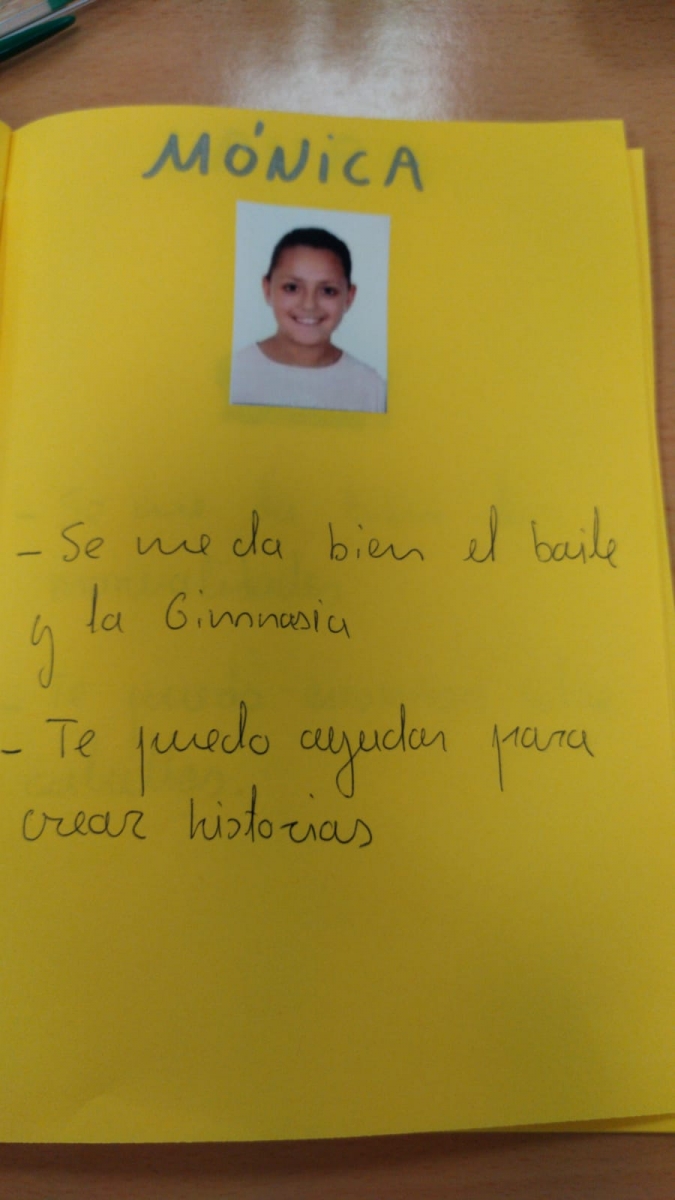 MÓNICA
- Se me da bien el baile
y la Gimnasia
- Te puedo ayudar para
crear historias